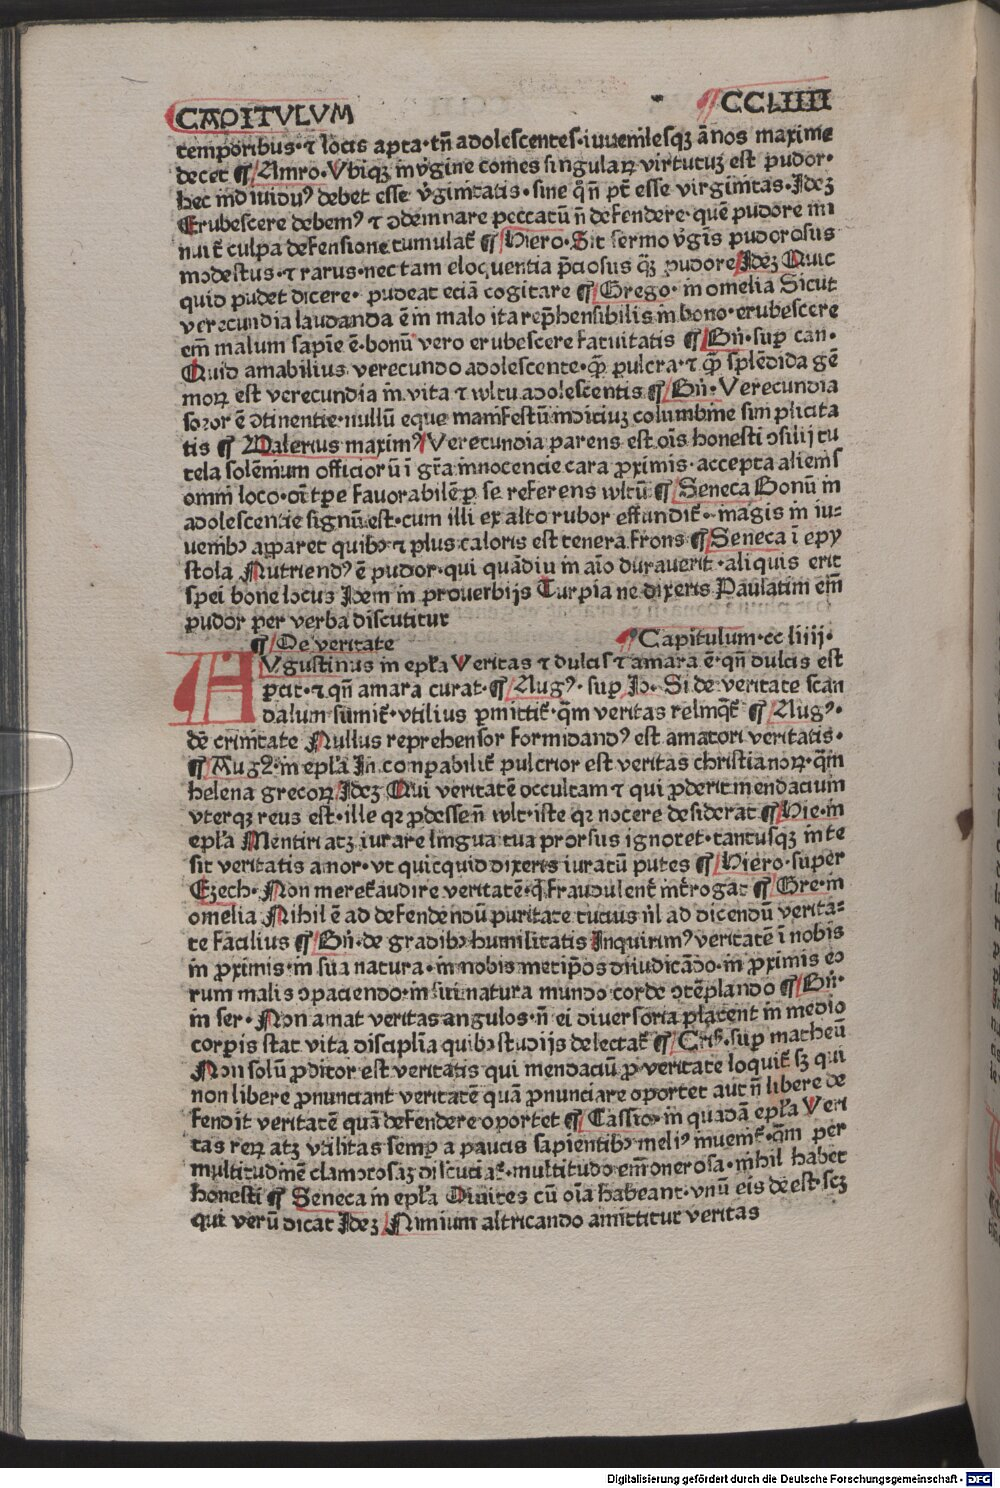 CAPITVLVM CCLIIII
temporibus·⁊ locis apta·tñ adolescentes·iuuenilesqꝫ ãnos maxime
decet ¶ Amro·Vbiqꝫ in v̾gine comes singularꝫ virtutuꝫ est pudor·
hec indiuiduꝰ debet esse v̾ginitatis·sine q̊ ñ pt̄ esse virginitas·Ideꝫ
Erubescere debemꝰ ⁊ ↄdemnare peccatū ñ defendere·quē pudore mi
nuit̄ culpa defensione cumulat̄ ¶ Hiero·Sit sermo v̾gis pudorosus
modestus·⁊ rarus·nec tam eloquentia p̄ciosus qꝫ̄ pudore Ideꝫ Quic
quid pudet dicere· pudeat eciā cogitare ¶ Grego·in omelia Sicut
verecundia laudanda ē in malo ita rep̄hensibilis in bono·erubescere
em̄ malum sapīe ē·bonū vero erubescere fatuitatis ¶ Bñ·suꝑ can·
Quid amabilius verecundo adolescente·q̄ꝫ pulcra·⁊ q̄ꝫ splēdida gē
morꝫ est verecundia in vita ⁊ wltu adolescentis ¶ Bñ·Verecundia
soror ē ↄtinentie·nullū eque manifestū indiciuꝫ columbine simplicita
tis ¶ Walerius maximꝰ Verecundia parens est oīs honesti ↄsilij tu
tela solēnium officiorū ī gr̄a innocencie cara proximis·accepta alienis
omni loco·oī tp̄e fauorabilē ꝑ se referens wltū ¶ Seneca Bonū in
adolescentie signū est·cum illi ex alto rubor effundit̄·magis in iu-
uenibꝫ apparet quibꝫ ⁊ plus caloris est tenera frons ¶ Seneca ī epy
stola Nutriendꝰ ē pudor·qui quādiu in aīo durauerit·aliquis erit
spei bone locus Idem in prouerbijs Turpia ne dixeris Paulatim em̄
pudor per verba discutitur
¶ De veritate ¶ Capitulum·cc liiii·
AVgustinus in epl̄a Veritas ⁊ dulcis ⁊ amara ē·qñ dulcis est
ꝑcit·⁊ qñ amara curat·¶ Augꝰ·suꝑ Jo· Si de veritate scan
dalum sumit̄·vtilius ꝑmittit̄·q̄m veritas relinqt̄ ¶ Augꝰ·
dē trinitate Nullus reprehensor formidandꝰ est amatori veritatis·
¶ Augꝰ·in epl̄a In comꝑabilit̄ pulcrior est veritas christianorꝫ·q̄m
helena grecorꝫ Ideꝫ Qui veritatē occultam ⁊ qui ꝓderit mendacium
vterqꝫ reus est·ille qꝛ ꝓdesse ñ wlt·iste qꝛ nocere desiderat ¶ Hie·in
epl̄a Mentiri atqꝫ iurare lingua tua prorsus ignoret·tantusqꝫ in te
sit veritatis amor·vt quicquid dixeris iuratū putes ¶ Hiero·super
Ezech·Non meret̄ audire veritatē·q̄ fraudulent̄ int̄rogat ¶ Gre·in
omelia Nihil ē ad defendendū puritate tucius nl̄ ad dicendū verita-
te facilius ¶ Bñ·de gradibꝫ humilitatis Inquirimꝰ veritatē ī nobis
in ꝓximis·in sua natura·in nobis metip̄os diiudicādo·in ꝓximis eo
rum malis ↄpaciendo·in sui natura mundo corde ↄtēplando ¶ Bñ·
in ser·Non amat veritas angulos·ñ ei diuersoria placent in medio
corꝑis stat vita disciplīa quibꝫ studijs delectat̄ ¶ Cris·suꝑ matheū
Non solū ꝓditor est veritatis qui mendaciū ꝓ veritate loquit̄ sꝫ qui
non libere ꝓnunciant veritatē quā ꝓnunciare oportet aut ñ libere de
fendit veritatē quā defendere oportet ¶ Cassio·in quadā epl̄a Veri
tas rerꝫ atqꝫ vtilitas semꝑ a paucis sapientibꝫ meliꝰ inuenit̄·q̄m per
multitudinē clamorosaꝫ discucia t̄·multitudo em̄ onerosa·nihil habet
honesti ¶ Seneca in epl̄a Diuites cū oīa habeant·vnū eis deest·scꝫ
qui verū dicat Ideꝫ Nimium altricando amittitur veritas
Digitalisierung gefördert durch die Deutsche Forschungsgemeinschaft - DFG